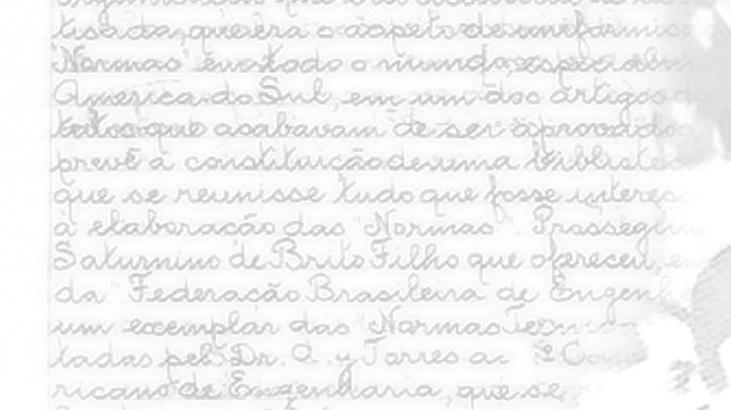 tisada, que era o aspeto de uniformisa
Normas" em todo o mundo, especialmen
America do Sul, em um dos artigos do
tatos que acabavam de ser aprovados
prevê a constituição de uma bibliotec
que se reunisse tudo que fosse interess
à elaboração das "Normas". Prosseguiu
Saturnino de Brito Filho que ofereceu, em
da Federacão Brasileira de Engenh
um exemplar das Normas Tecnica
tadas pelo Dr. A. y Torres ao Con
ricano de Engenharia, que se